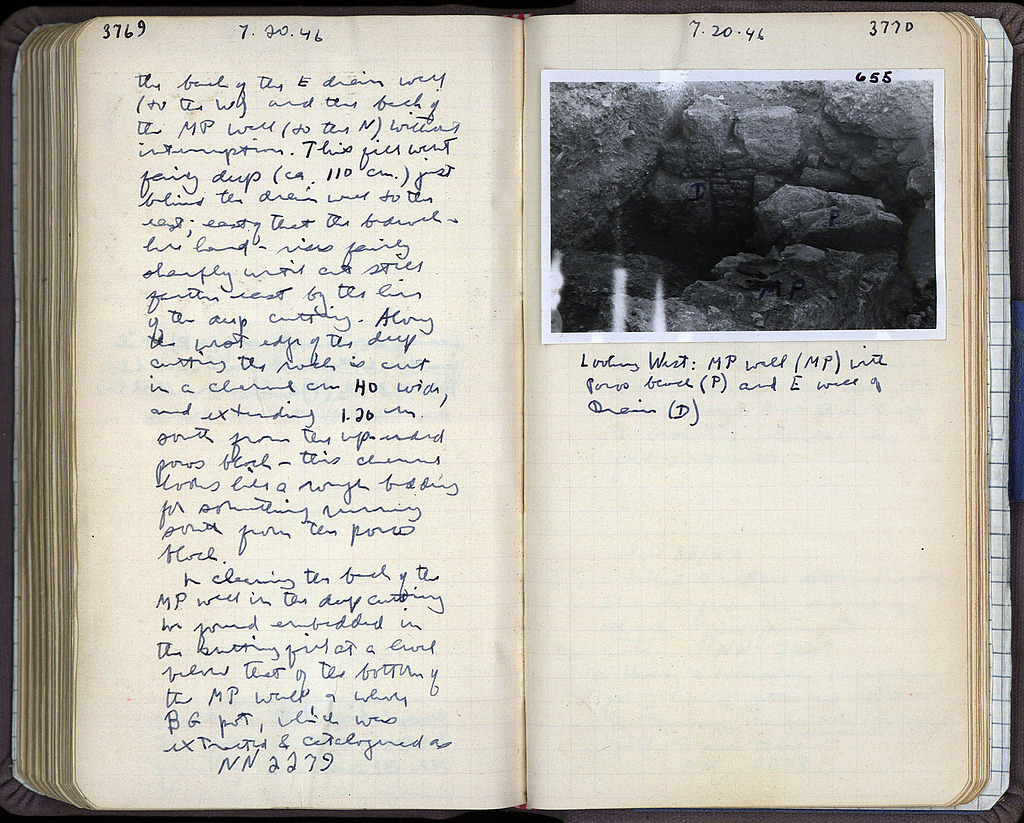 3769 7.20.46
the back of the E drain wall
(to the W) and the back of
the MP wall (to the N) without
interruption. This fill went
fairly deep (ca. 110 cm.) just
behind the drain wall to the
east; east of that the bedrock -
here hard - rises fairly
sharply until cut still
farther east by the line
of the deep cutting. Along
the west edge of the deep
cutting the rock is cut
in a channel cm 40 wide,
and extending 1.20 m
south from the up-ended
poros block - this channel
looks like a rough bedding
for something running
south from the poros
block.
In cleaning the back of the
MP wall in the deep cutting
we found embedded in
the fill at a level
below that of the bottom of
the MP wall a whole
BG pot, which was
extracted & catalogued as
NN 2279
7.20.46 3770
655
D
P
MP
Looking West: MP wall (MP) with
poros block (P) and E wall of
Drain (D)